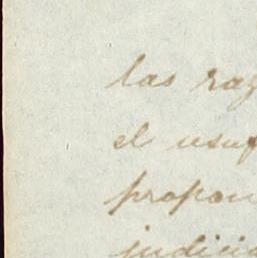 las raz
el usuf
propon
judicia